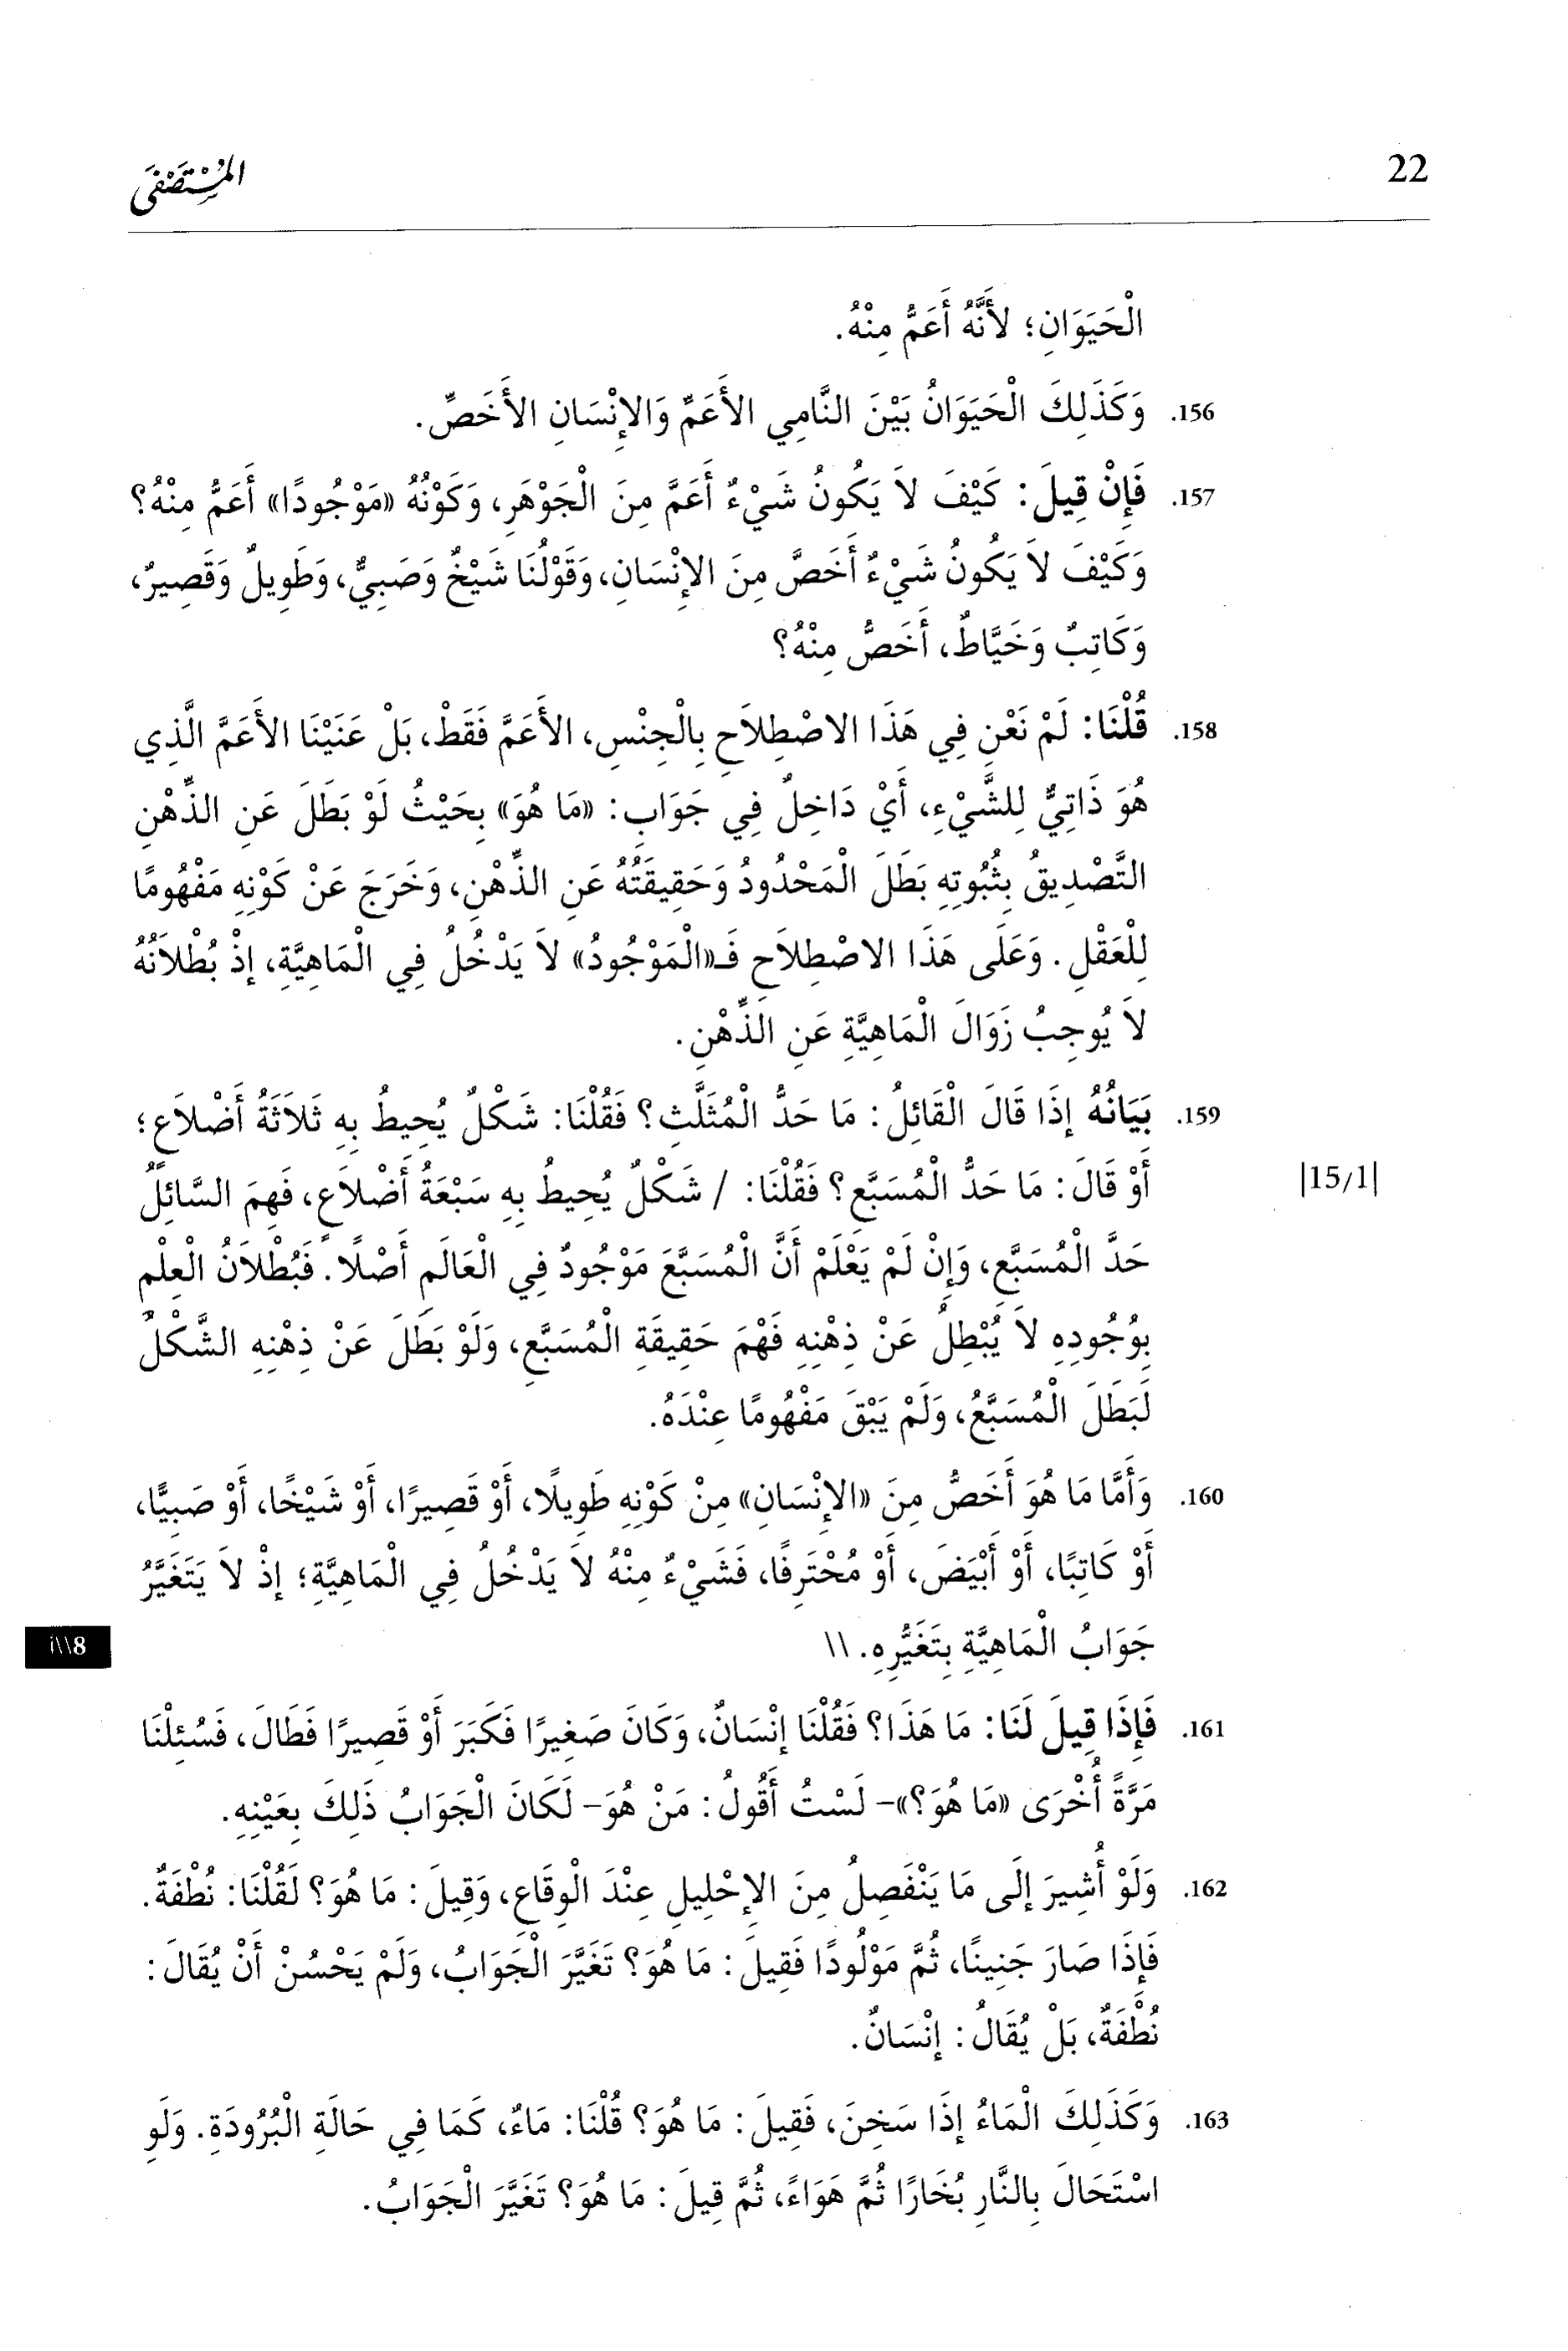 22
المُسْتَصْفَى
الْحَيَوَانِ؛ لأَنَّهُ أَعَمُّ مِنْهُ.
156. وَكَذَلِكَ الْحَيَوَانُ بَيْنَ النَّامِي الأَعَمِّ وَالإِنْسَانِ الأَخَصِّ.
157. فَإِنْ قِيلَ: كَيْفَ لاَ يَكُونُ شَيْءٌ أَعَمَّ مِنَ الْجَوْهَرِ، وَكَوْنُهُ «مَوْجُودًا» أَعَمُّ مِنْهُ؟
وَكَيْفَ لاَ يَكُونُ شَيْءٌ أَخَصَّ مِنَ الإِنْسَانِ، وَقَوْلُنَا شَيْخٌ وَصَبِيٌّ، وَطَوِيلٌ وَقَصِيرٌ،
وَكَاتِبٌ وَخَيَّاطٌ، أَخَصُّ مِنْهُ؟
158. قُلْنَا: لَمْ نَعْنِ فِي هَذَا الاصْطِلاَحِ بِالْجِنْسِ، الأَعَمَّ فَقَطْ، بَلْ عَنَيْنَا الأَعَمَّ الَّذِي
هُوَ ذَاتِيٌّ لِلشَّيْءِ، أَيْ دَاخِلٌ فِي جَوَابِ: «مَا هُوَ» بِحَيْثُ لَوْ بَطَلَ عَنِ الذِّهْنِ
التَّصْدِيقُ بِثُبُوتِهِ بَطَلَ الْمَحْدُودُ وَحَقِيقَتُهُ عَنِ الذِّهْنِ، وَخَرَجَ عَنْ كَوْنِهِ مَفْهُومًا
لِلْعَقْلِ. وَعَلَى هَذَا الاصْطِلاَحِ فَـ«الْمَوْجُودُ» لاَ يَدْخُلُ فِي الْمَاهِيَّةِ، إِذْ بُطْلاَنُهُ
لاَ يُوجِبُ زَوَالَ الْمَاهِيَّةِ عَنِ الذِّهْنِ.
159. بَيَانُهُ إِذَا قَالَ الْقَائِلُ: مَا حَدُّ الْمُثَلَّثِ؟ فَقُلْنَا: شَكْلٌ يُحِيطُ بِهِ ثَلاَثَةُ أَضْلاَعٍ؛
|15/1| أَوْ قَالَ: مَا حَدُّ الْمُسَبَّعِ؟ فَقُلْنَا: / شَكْلٌ يُحِيطُ بِهِ سَبْعَةُ أَضْلاَعٍ، فَهِمَ السَّائِلُ
حَدَّ الْمُسَبَّعِ، وَإِنْ لَمْ يَعْلَمْ أَنَّ الْمُسَبَّعَ مَوْجُودٌ فِي الْعَالَمِ أَصْلًا. فَبُطْلاَنُ الْعِلْمِ
بِوُجُودِهِ لاَ يُبْطِلُ عَنْ ذِهْنِهِ فَهْمَ حَقِيقَةِ الْمُسَبَّعِ، وَلَوْ بَطَلَ عَنْ ذِهْنِهِ الشَّكْلُ
لَبَطَلَ الْمُسَبَّعُ، وَلَمْ يَبْقَ مَفْهُومًا عِنْدَهُ.
160. وَأَمَّا مَا هُوَ أَخَصُّ مِنَ «الإِنْسَانِ» مِنْ كَوْنِهِ طَوِيلًا، أَوْ قَصِيرًا، أَوْ شَيْخًا، أَوْ صَبِيًّا،
أَوْ كَاتِبًا، أَوْ أَبْيَضَ، أَوْ مُحْتَرِفًا، فَشَيْءٌ مِنْهُ لاَ يَدْخُلُ فِي الْمَاهِيَّةِ؛ إِذْ لاَ يَتَغَيَّرُ
جَوَابُ الْمَاهِيَّةِ بِتَغَيُّرِهِ. \\
8\\أ
161. فَإِذَا قِيلَ لَنَا: مَا هَذَا؟ فَقُلْنَا إِنْسَانٌ، وَكَانَ صَغِيرًا فَكَبَرَ أَوْ قَصِيرًا فَطَالَ، فَسُئِلْنَا
مَرَّةً أُخْرَى «مَا هُوَ؟»- لَسْتُ أَقُولُ: مَنْ هُوَ- لَكَانَ الْجَوَابُ ذَلِكَ بِعَيْنِهِ.
162. وَلَوْ أُشِيرَ إِلَى مَا يَنْفَصِلُ مِنَ الإِحْلِيلِ عِنْدَ الْوِقَاعِ، وَقِيلَ: مَا هُوَ؟ لَقُلْنَا: نُطْفَةٌ.
فَإِذَا صَارَ جَنِينًا، ثُمَّ مَوْلُودًا فَقِيلَ: مَا هُوَ؟ تَغَيَّرَ الْجَوَابُ، وَلَمْ يَحْسُنْ أَنْ يُقَالَ:
نُطْفَةٌ، بَلْ يُقَالُ: إِنْسَانٌ.
163. وَكَذَلِكَ الْمَاءُ إِذَا سَخِنَ، فَقِيلَ: مَا هُوَ؟ قُلْنَا: مَاءٌ، كَمَا فِي حَالَةِ الْبُرُودَةِ. وَلَوِ
اسْتَحَالَ بِالنَّارِ بُخَارًا ثُمَّ هَوَاءً، ثُمَّ قِيلَ: مَا هُوَ؟ تَغَيَّرَ الْجَوَابُ.